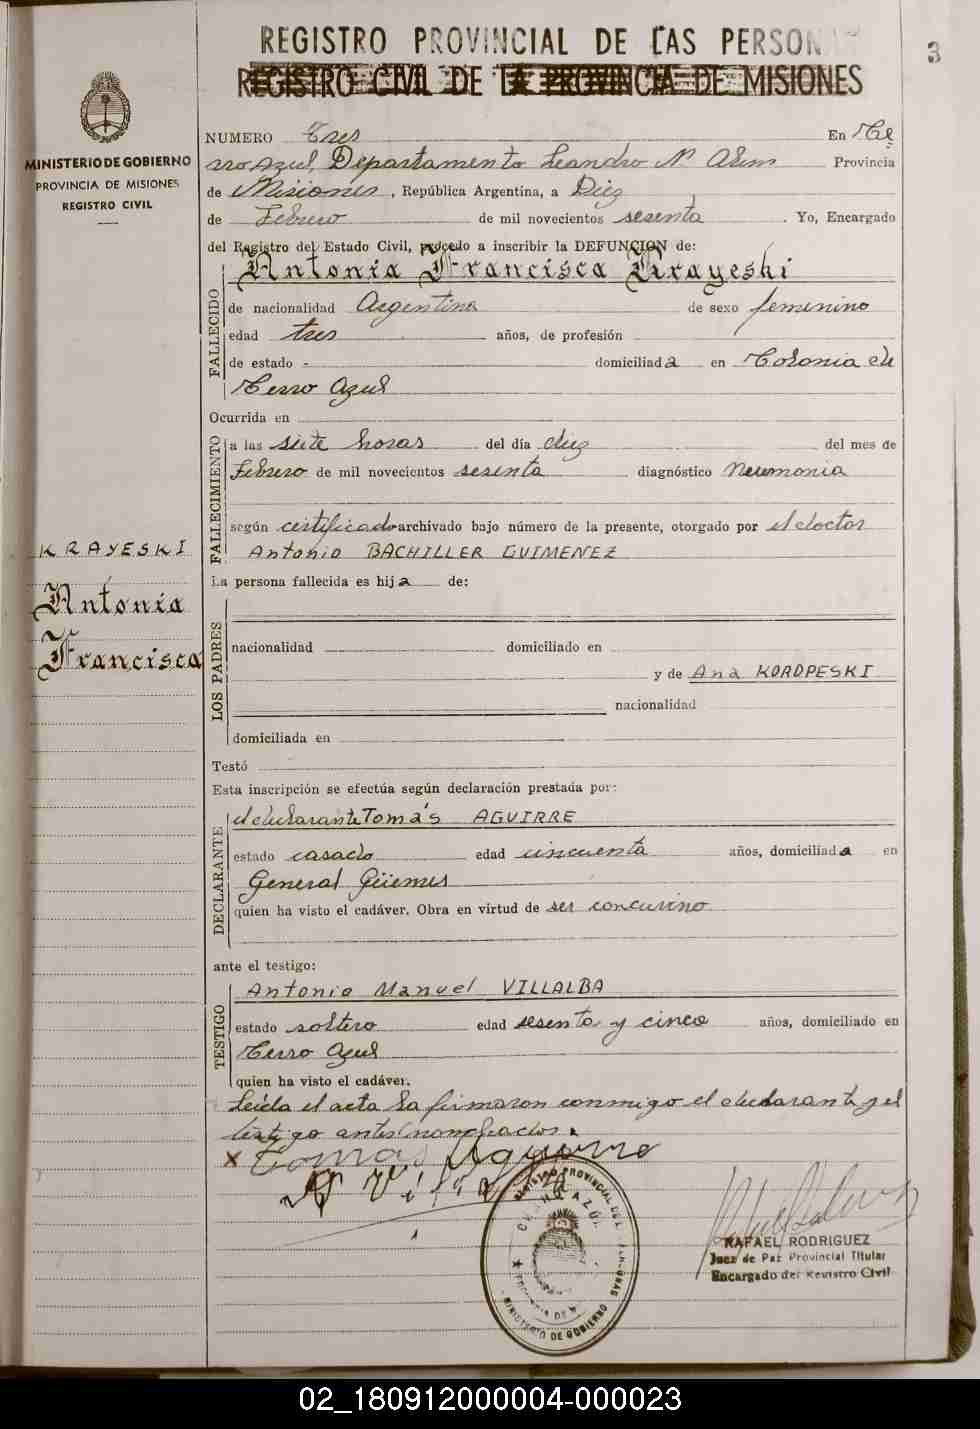 REGISTRO PROVINCIAL DE LAS PERSON
REGISTRO CIVIL DE LA PROVINCIA DE MISIONES
3
MINISTERIO DE GOBIERNO
PROVINCIA DE MISIONES
REGISTRO CIVIL
NUMERO Tres En Ce
rro Azul, Departamento Leandro N. Alem Provincia
de Misiones, República Argentina, a Diez
de Febrero de mil novecientos sesenta. Yo, Encargado
del Registro del Estado Civil, procedo a inscribir la DEFUNCION de:
Antonia Francisca Krayeski
FALLECIDO
de nacionalidad Argentina de sexo femenino
edad tres años, de profesión
de estado - domiciliada en Colonia de
Cerro Azul
Ocurrida en
FALLECIMIENTO
a las siete horas del día diez del mes de
Febrero de mil novecientos sesenta diagnóstico Neumonia
según certificado archivado bajo número de la presente, otorgado por el doctor
Antonio BACHILLER GUIMENEZ
KRAYESKI
Antonia
Francisca
La persona fallecida es hija de:
LOS PADRES
nacionalidad domiciliado en
y de Ana KOROPESKI
nacionalidad
domiciliada en
Testó
Esta inscripción se efectúa según declaración prestada por:
DECLARANTE
el declarante Tomás AGUIRRE
estado casado edad cincuenta años, domiciliada en
General Güemes
quien ha visto el cadáver. Obra en virtud de ser concuvino
ante el testigo:
TESTIGO
Antonio Manuel VILLALBA
estado soltero edad sesenta y cinco años, domiciliado en
Cerro Azul
quien ha visto el cadáver.
Leída el acta la firmaron conmigo el declarante y el
testigo antes nombrados.
x Tomas Aguirre
RAFAEL RODRIGUEZ
Juez de Paz Provincial Titular
Encargado del Registro Civil
MINISTERIO DE GOBIERNO
02_180912000004-000023